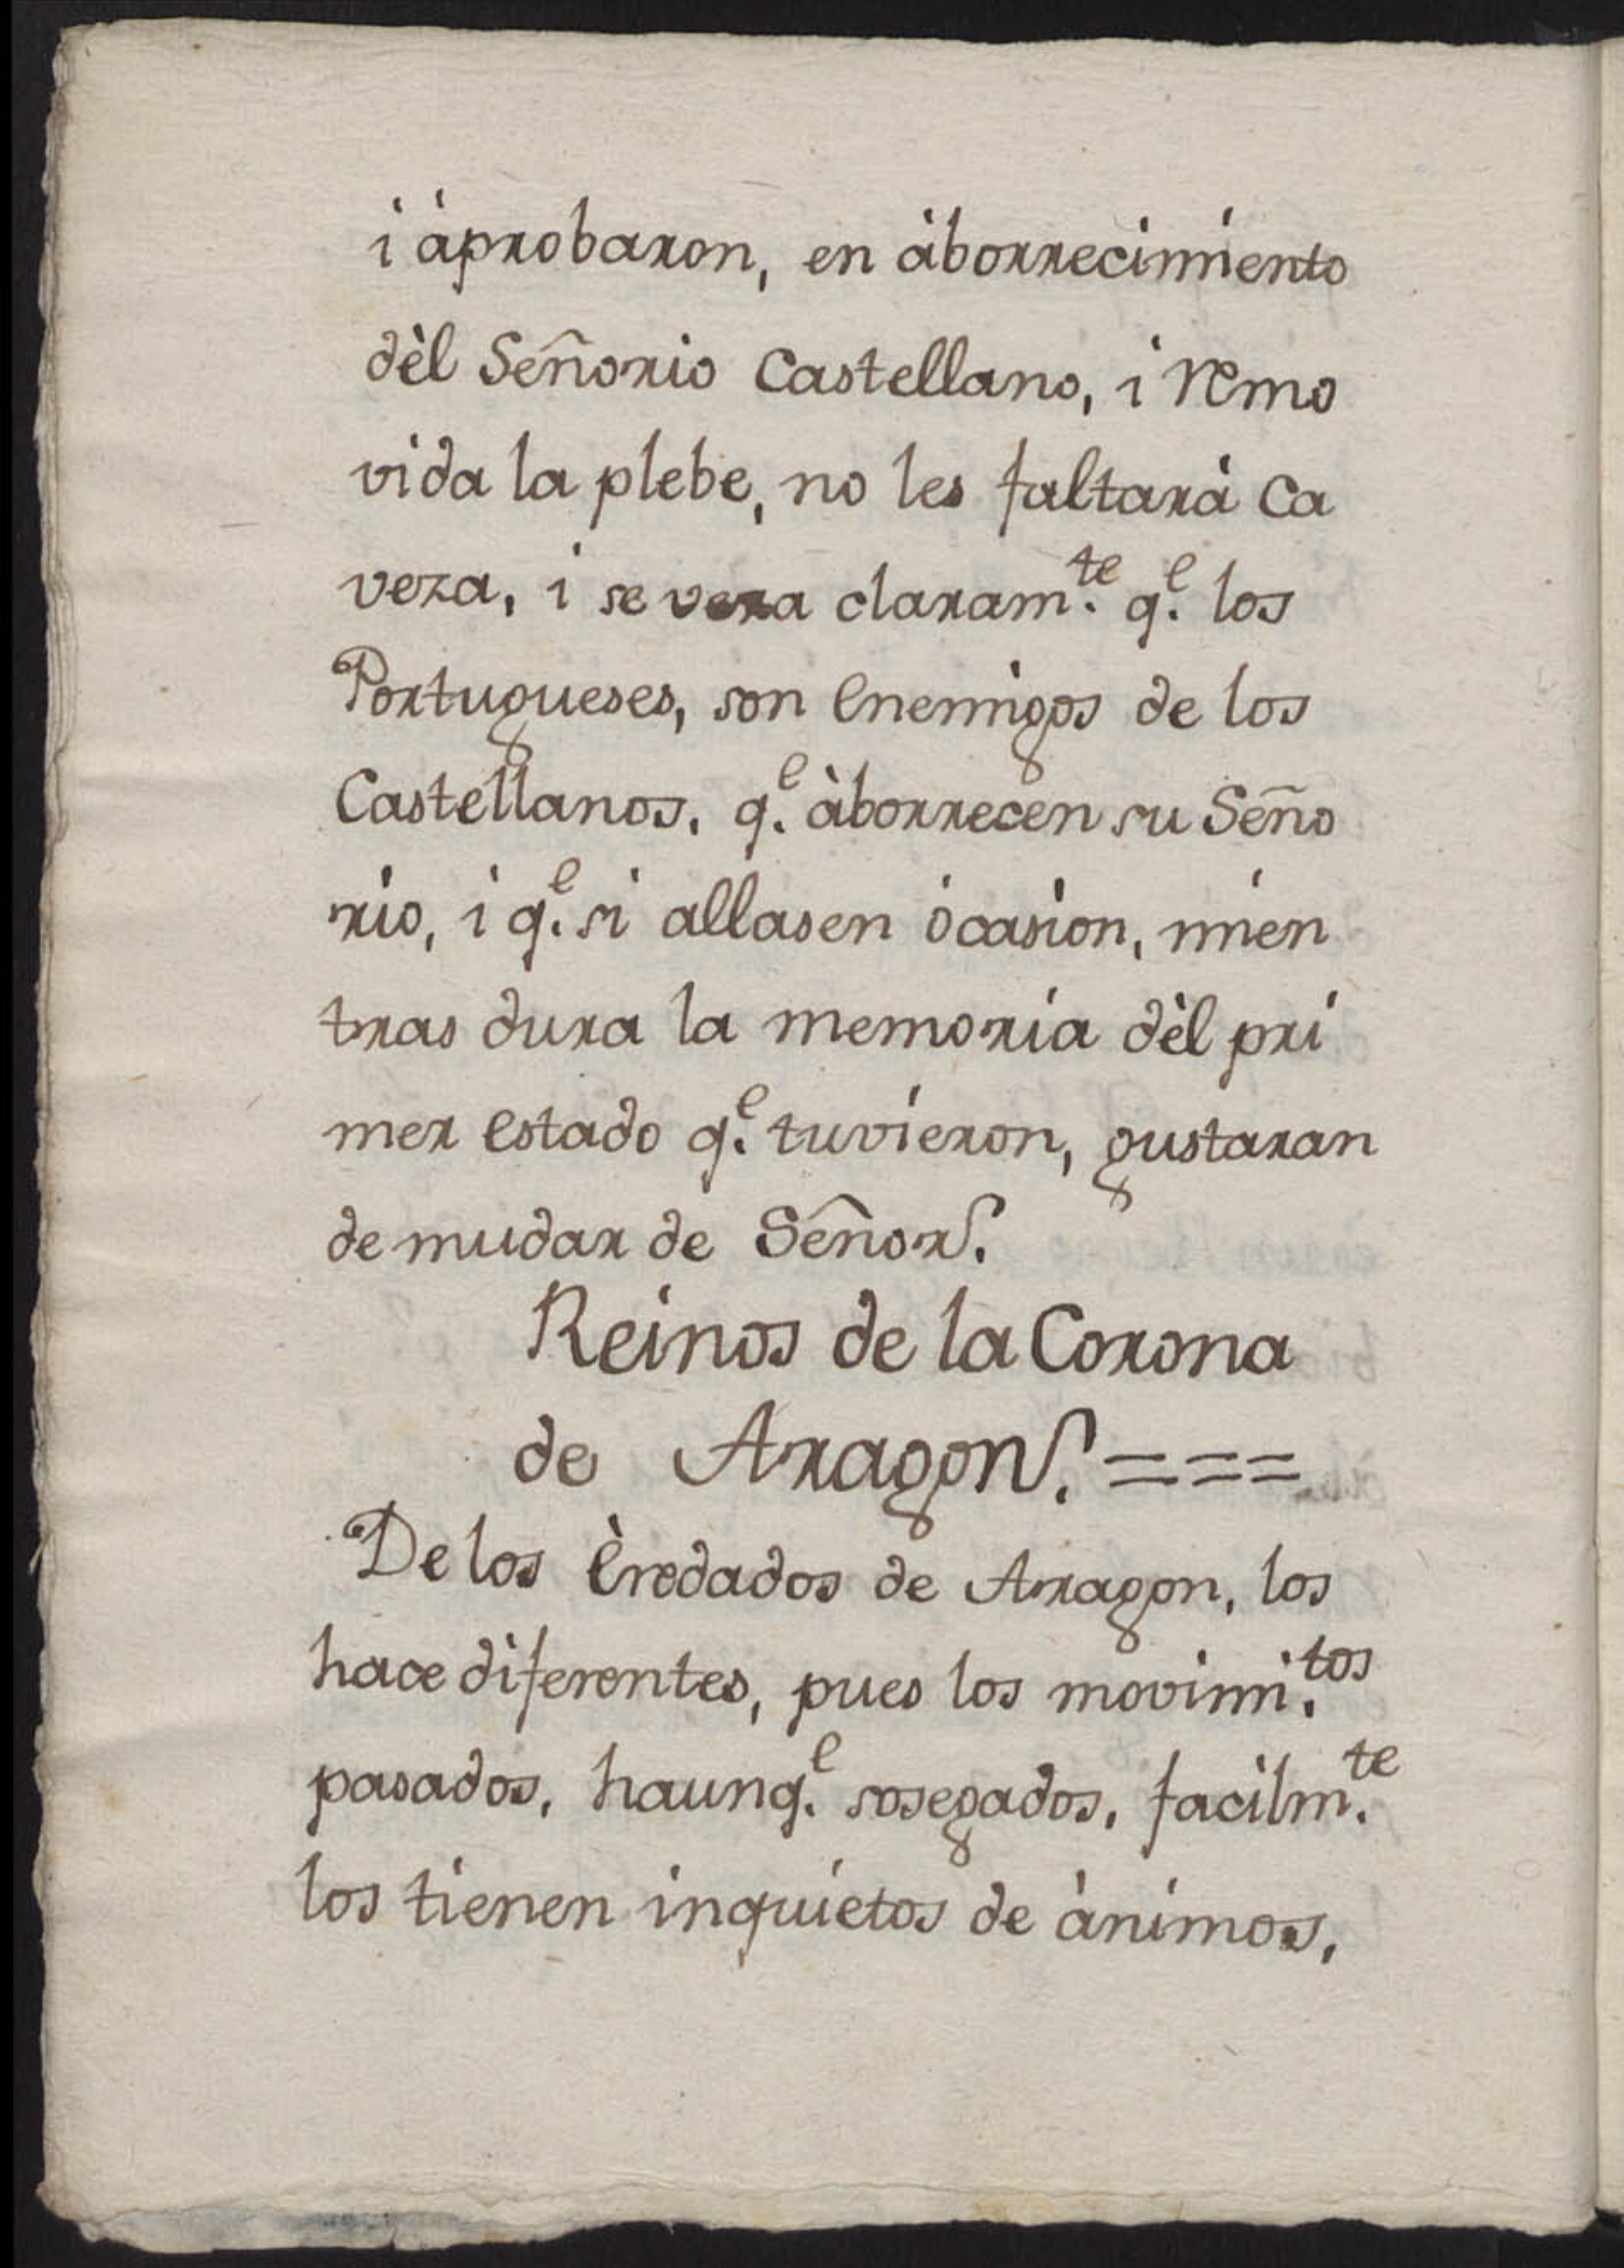 i àprobaron, en àborrecimiento
dèl Señorio Castellano, i remo
vida la plebe, no les faltarà Ca
veza, i se vera claram.te q.e los
Portugueses, son Enemigos de los
Castellanos, q.e àborrecen su Seño
rio, i q.e si allasen òcasion, mien
tras dura la memoria dèl pri
mer Estado q.e tuvieron, gustaran
de mudar de Señor.
Reinos de la Corona
de Aragon. ===
De los Èredados de Aragon, los
hace diferentes, pues los movimi.tos
pasados, haunq.e sosegados, facilm.te
los tienen inquietos de ànimos,